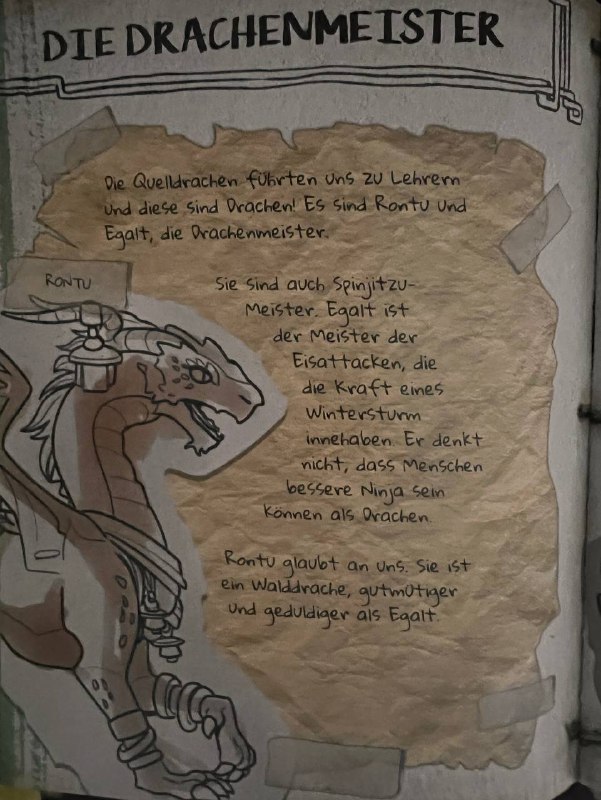 DIE DRACHENMEISTER
Die Quelldrachen führten uns zu Lehrern
und diese sind Drachen! Es sind Rontu und
Egalt, die Drachenmeister.
RONTU
Sie sind auch Spinjitzu-
Meister. Egalt ist
der Meister der
Eisattacken, die
die Kraft eines
Wintersturm
innehaben. Er denkt
nicht, dass Menschen
bessere Ninja sein
können als Drachen.
Rontu glaubt an uns. Sie ist
ein Walddrache, gutmütiger
und geduldiger als Egalt.